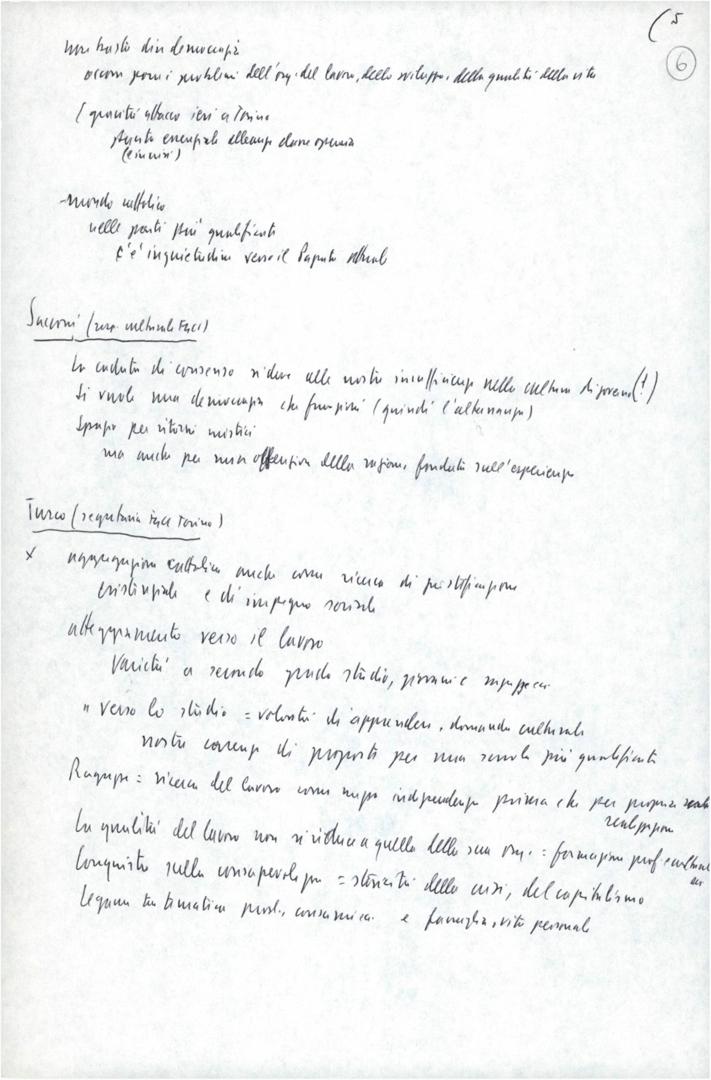 (5
6
non basta dire democrazia
occorre porsi i problemi dell'org. del lavoro, dello sviluppo, della qualità della vita
(gravità attacco ieri a Torino
alleanze classe operaia
- mondo cattolico
nelle parti più qualificate
c'è inquietudine verso il Papato attuale
(resp. culturale Fgci)
La caduta di consenso si deve alle nostre insufficienze nella cultura di governo (!)
Si vuole una democrazia che funzioni (quindi l'alternanza)
Spazio per ritorni mistici
ma anche per una offensiva della ragione, fondata sull'esperienza
Turco (segretaria Fgci Torino)
x aggregazione cattolica anche come ricerca di giustificazione
esistenziale e di impegno sociale
atteggiamento verso il lavoro
Varietà a secondo grado studio, giovani e ragazze
" verso lo studio = volontà di apprendere, domanda culturale
nostra carenza di proposte per una scuola più qualificata
Ragazze = ricerca del lavoro come indipendenza prima che per propria
realizzazione
La qualità del lavoro non si riduce a quella della sua org. = formazione prof. e culturale
Conquista sulla consapevolezza = storicità della crisi, del capitalismo
Legame tra tematica e famiglia, vita personale